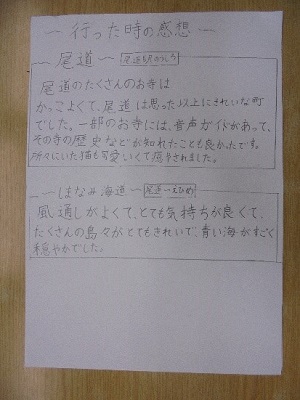 〜行った時の感想〜
〜尾道〜 尾道駅から
尾道のたくさんのお寺は
かっこよくて、尾道は思った以上にきれいな町
でした。一部のお寺には、音声ガイドがあって、
その寺の歴史などが知れたことも良かったです。
所々にいた猫も可愛いくて癒りされました。
〜はなみ海道〜 尾道〜えひめ
風通しがよくて、とても気持ちが良くて、
たくさんの島々がとてもきれいで、青い海がすごく
穏やかでした。